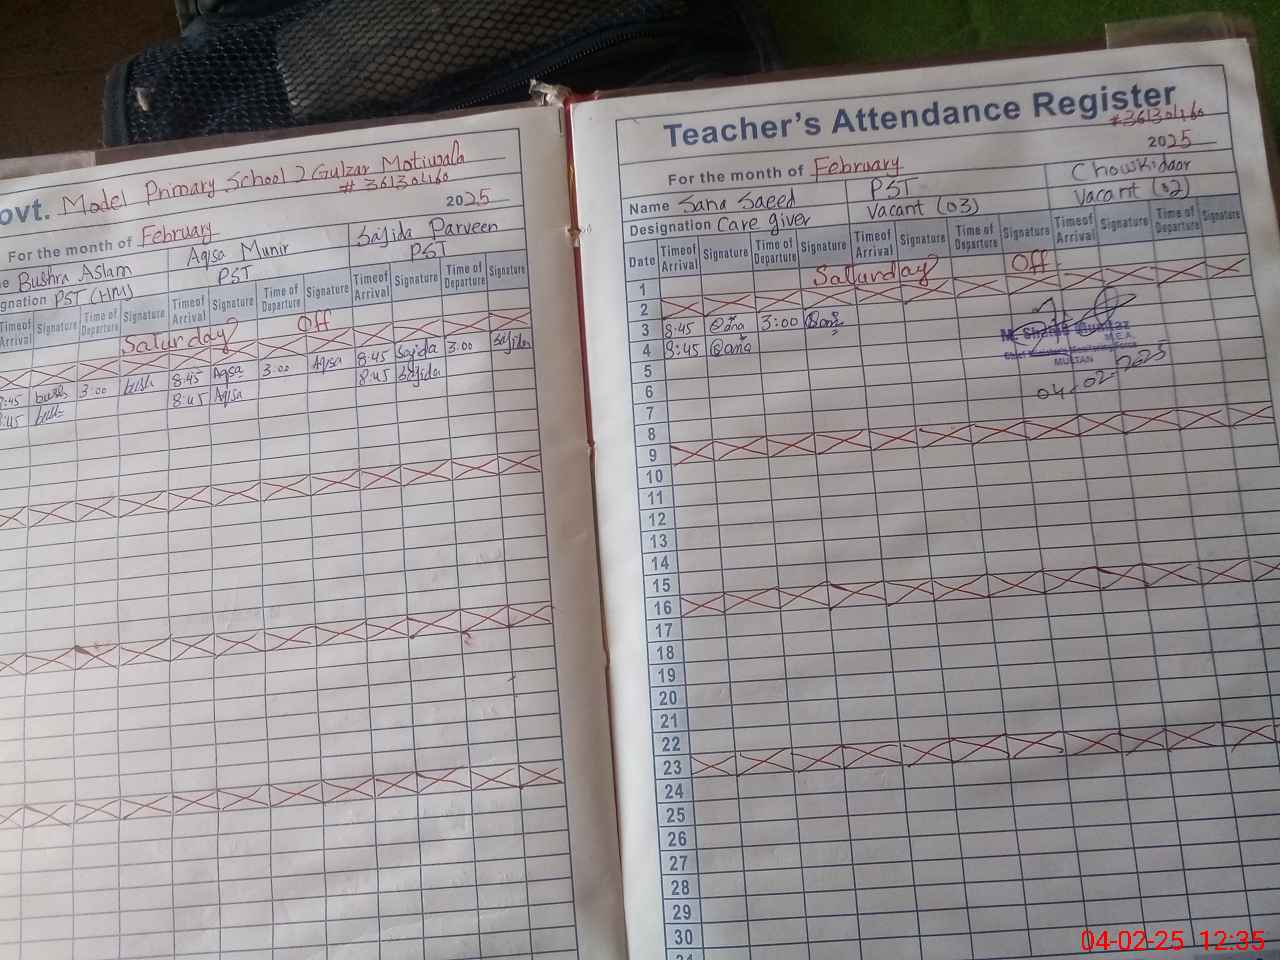 ovt. Model Primary School 2 Gulzar Motiwala
# 36130460
2025
For the month of February
e Bushra Aslam Aqsa Munir Sajida Parveen
gnation PST (HM) PST PST
Timeof Arrival Signature Time of Departure Signature Timeof Arrival Signature Time of Departure Signature Timeof Arrival Signature Time of Departure Signature
Saturday Off
:45 3:00 8:45 Aqsa 3:00 Aqsa 8:45 Sajida 3:00 Sajida
:45 8:45 Aqsa 8:45 Sajida
Teacher's Attendance Register
# 36130460
2025
For the month of February
Name Sana Saeed PST Chowkidaar
Designation Care giver Vacant (03) Vacant (02)
Date Timeof Arrival Signature Time of Departure Signature Timeof Arrival Signature Time of Departure Signature Timeof Arrival Signature Time of Departure Signature
1 Saturday Off
2
3 8:45 Sana 3:00 Sana
4 8:45 Sana
M.E.A
MULTAN
04-02-2025
5
6
7
8
9
10
11
12
13
14
15
16
17
18
19
20
21
22
23
24
25
26
27
28
29
30
04-02-25 12:35